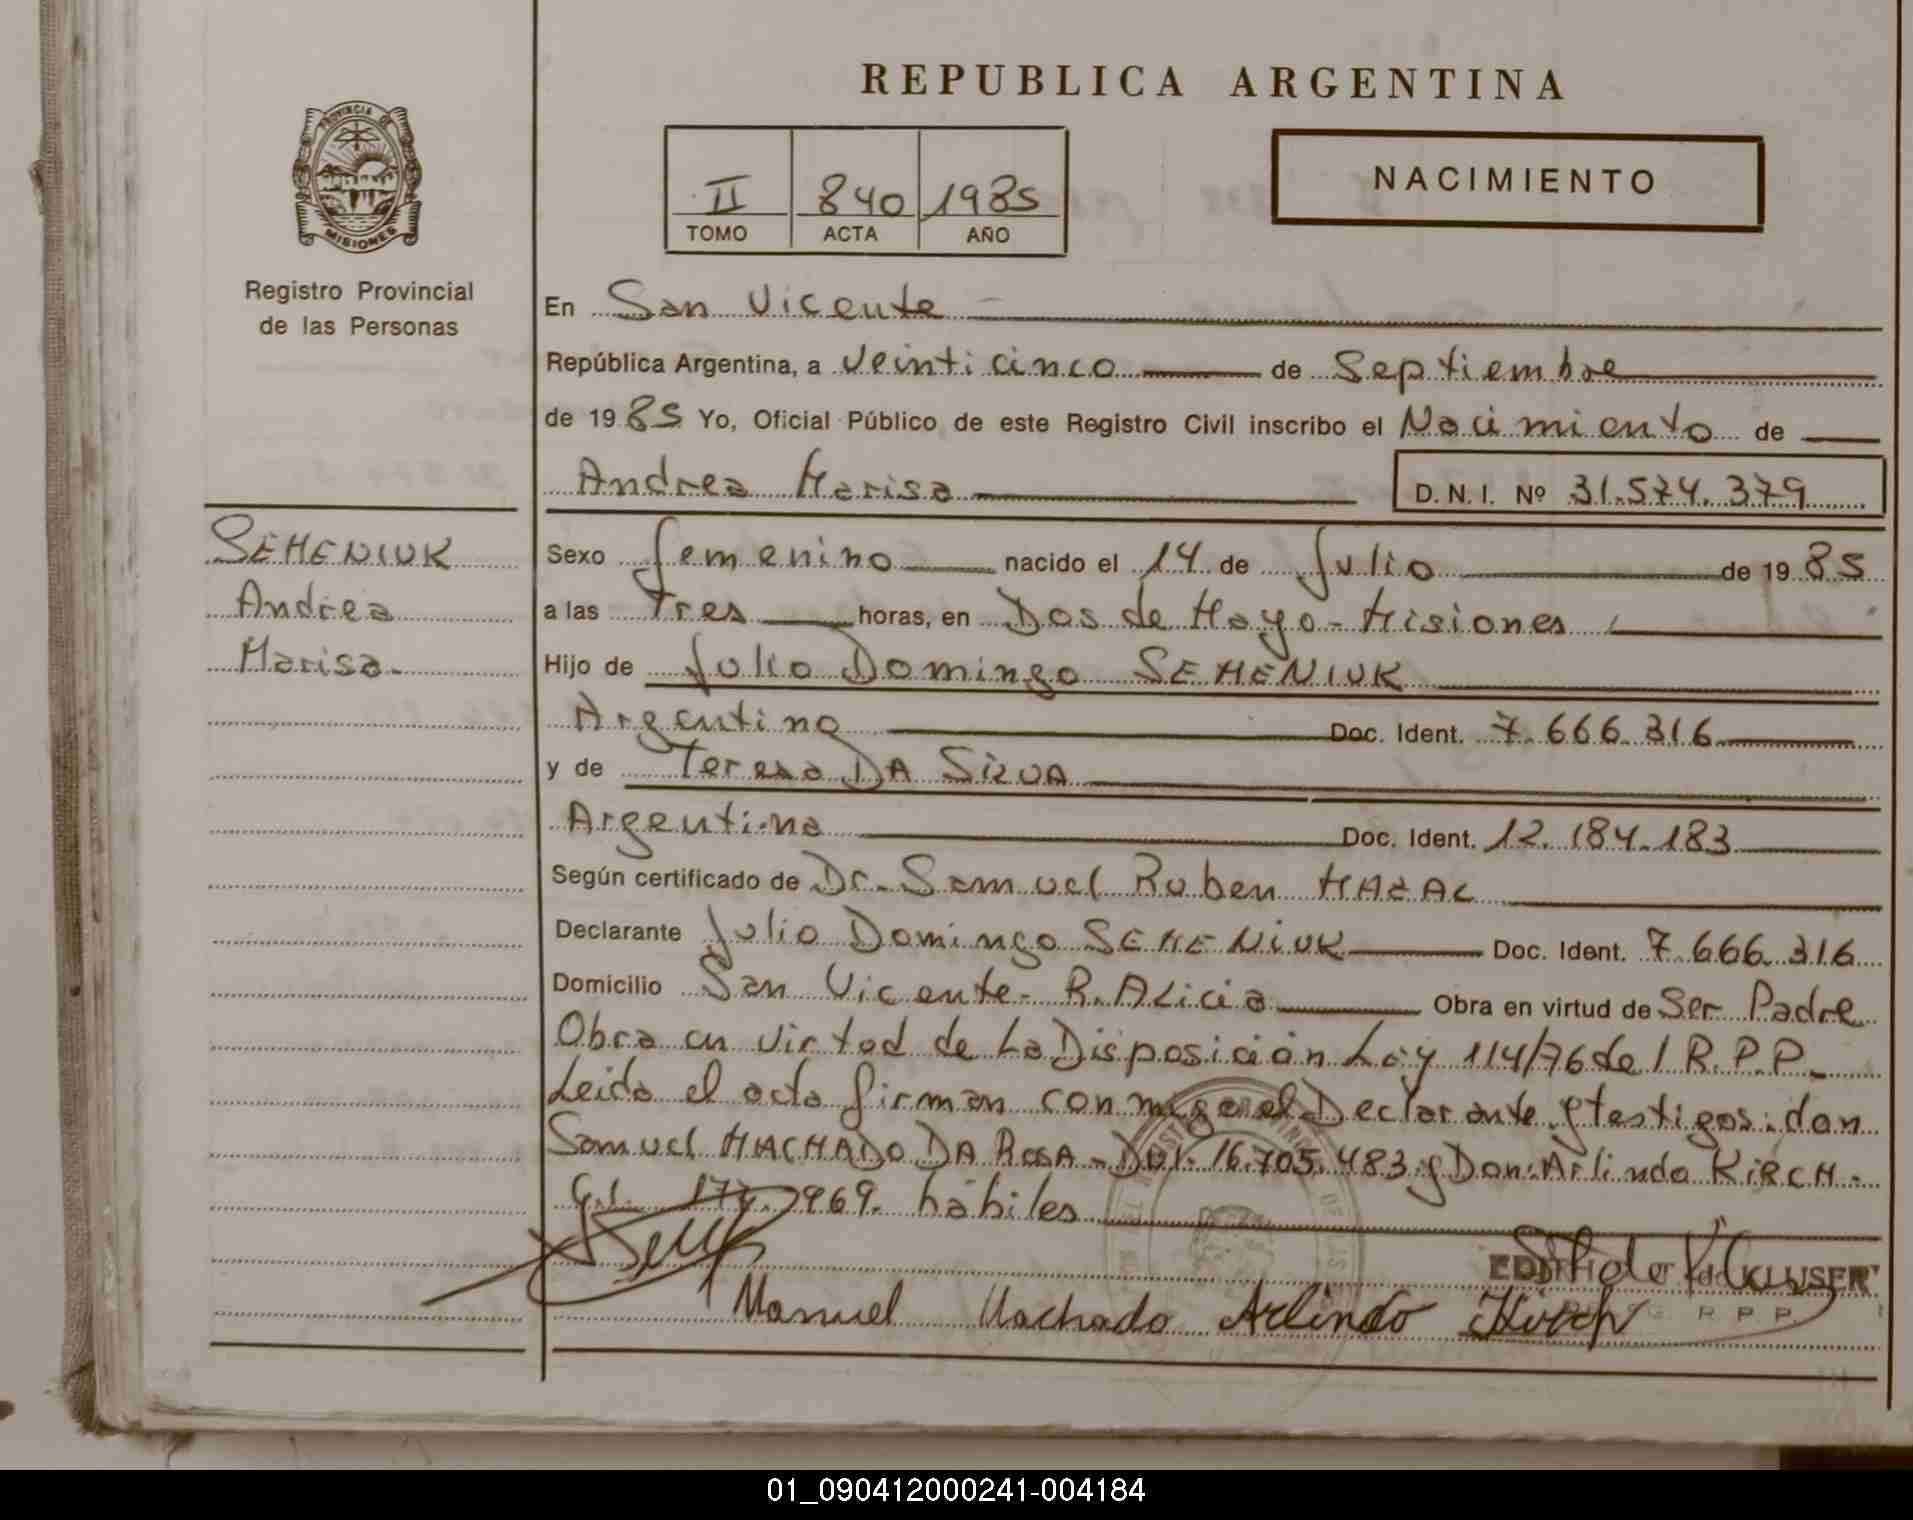 REPUBLICA ARGENTINA
PROVINCIA DE
MISIONES
Registro Provincial
de las Personas
II 840 1985
TOMO ACTA AÑO
NACIMIENTO
En San Vicente
República Argentina, a veinticinco de Septiembre
de 1985 Yo, Oficial Público de este Registro Civil inscribo el Nacimiento de
Andrea Marisa D.N.I. Nº 31.574.379
SEMENIUK
Andrea
Marisa.
Sexo femenino nacido el 14 de Julio de 1985
a las Tres horas, en Dos de Mayo - Misiones
Hijo de Julio Domingo SEMENIUK
Argentino Doc. Ident. 7.666.316
y de Teresa DA SILVA
Argentina Doc. Ident. 12.184.183
Según certificado de Dr. Samuel Ruben
Declarante Julio Domingo SEMENIUK Doc. Ident. 7.666.316
Domicilio San Vicente - R. ALicia Obra en virtud de Ser Padre
Obra en virtud de La Disposición Ley 114/76 del R.P.P.
Leida el acta firman conmigo el Declarante y testigos: don
Samuel MACHADO DA ROSA - DNI. 16.705.483 y Don: Arlindo KIRCH -
969. hábiles
EDITH KLUSER
R P P
Manuel Machado Arlindo Kirch
01_090412000241-004184